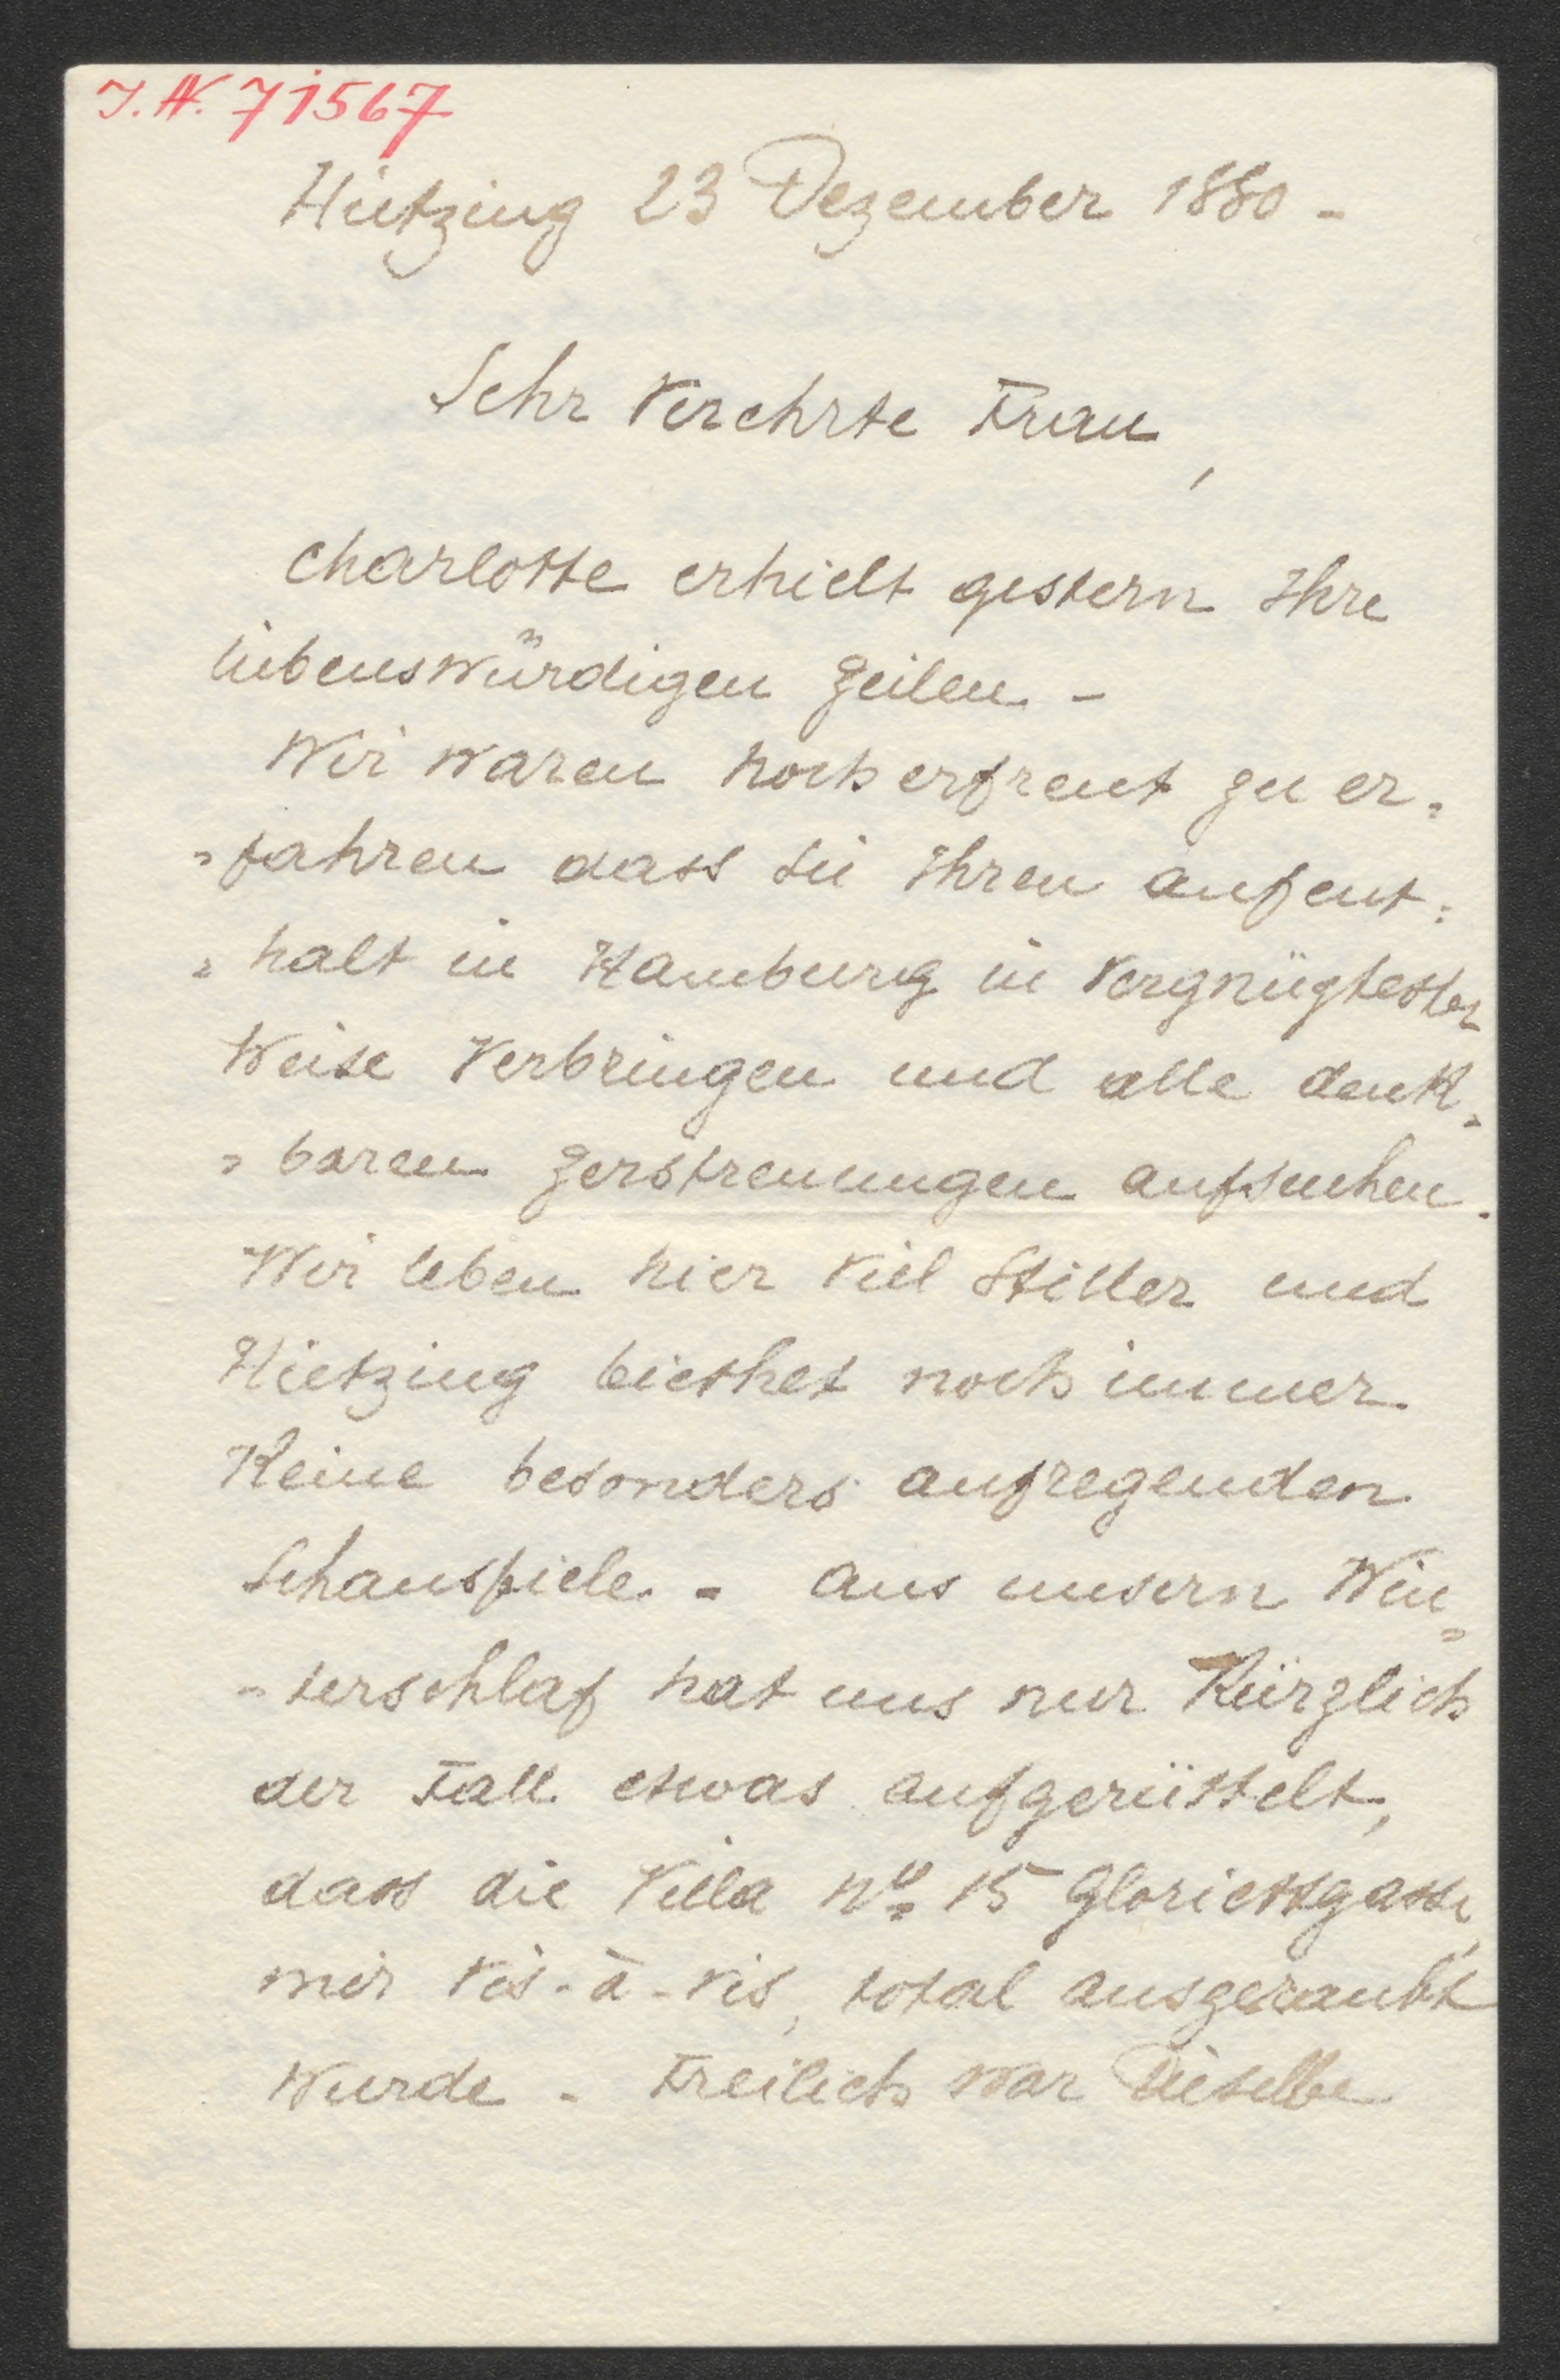 J.N. 71567
Hietzing 23 Dezember 1880 -
Sehr Verehrte Frau,
Charlotte erhielt gestern Ihre
liebenswürdigen Zeilen -
Wir waren hoch erfreut zu er=
=fahren dass Sie Ihren Aufent=
=halt in Hamburg in Vergnügtester
Weise Verbringen und alle denk=
=baren Zerstreuungen aufsuchen.
Wir leben hier Viel Stiller und
Hietzing biethet noch immer
Keine besonders aufregenden
Schauspiele - Aus unsern Win=
=terschlaf hat uns nur Kürzlich
der Fall etwas aufgerüttelt,
dass die Villa No 15 Gloriettgasse,
mir Vis-à-Vis, total ausgeraubt
Wurde - Freilich war Dieselbe